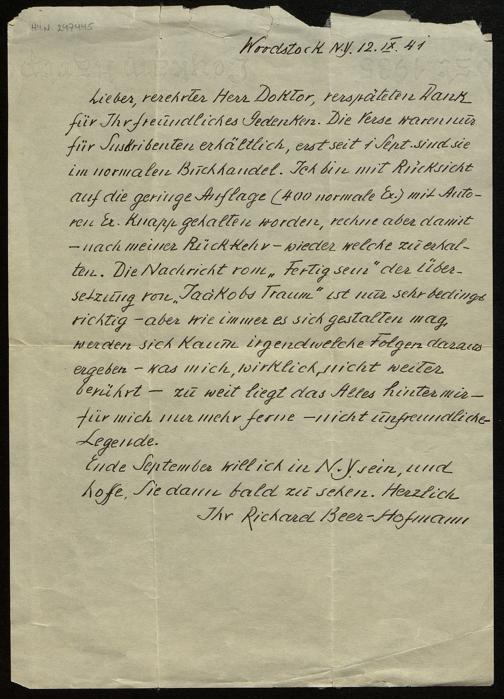 H.I.N. 247445
Woodstock N.Y. 12. IX. 41
Lieber, verehrter Herr Doktor, verspäteten Dank
für Ihr freundliches Gedenken. Die Verse waren nur
für Suskribenten erhältlich, erst seit 1 Sept. sind sie
im normalen Buchhandel. Ich bin mit Rücksicht
auf die geringe Auflage (400 normale Ex.) mit Auto-
ren Ex. Knapp gehalten worden, rechne aber damit
– nach meiner Rückkehr – wieder welche zu erhal-
ten. Die Nachricht vom „Fertig sein" der Über-
setzung von „Jaákobs Traum" ist nur sehr bedingt
richtig – aber wie immer es sich gestalten mag,
werden sich Kaum irgendwelche Folgen daraus
ergeben – was mich, wirklich, nicht weiter
berührt – zu weit liegt das Alles hinter mir –
für mich nur mehr ferne – nicht unfreundliche –
Legende.
Ende September will ich in N.Y. sein, und
hoffe, Sie dann bald zu sehen. Herzlich
Ihr Richard Beer-Hofmann